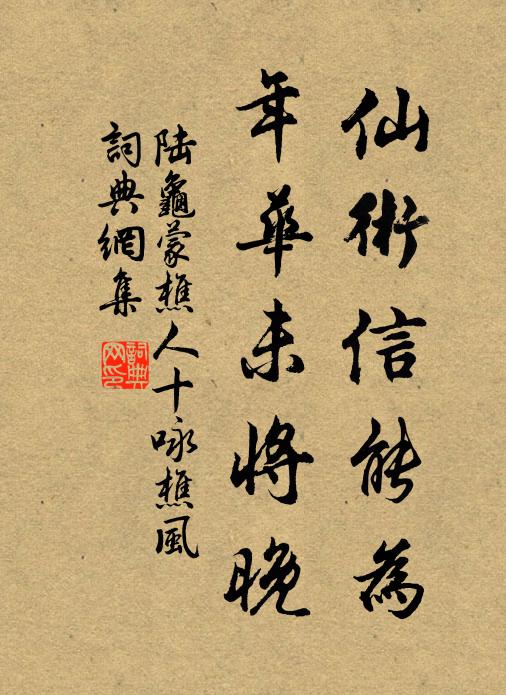 仙術信能為
年華未將晚
陆龜蒙樵人十咏樵風
詞典網集
詞典
网印